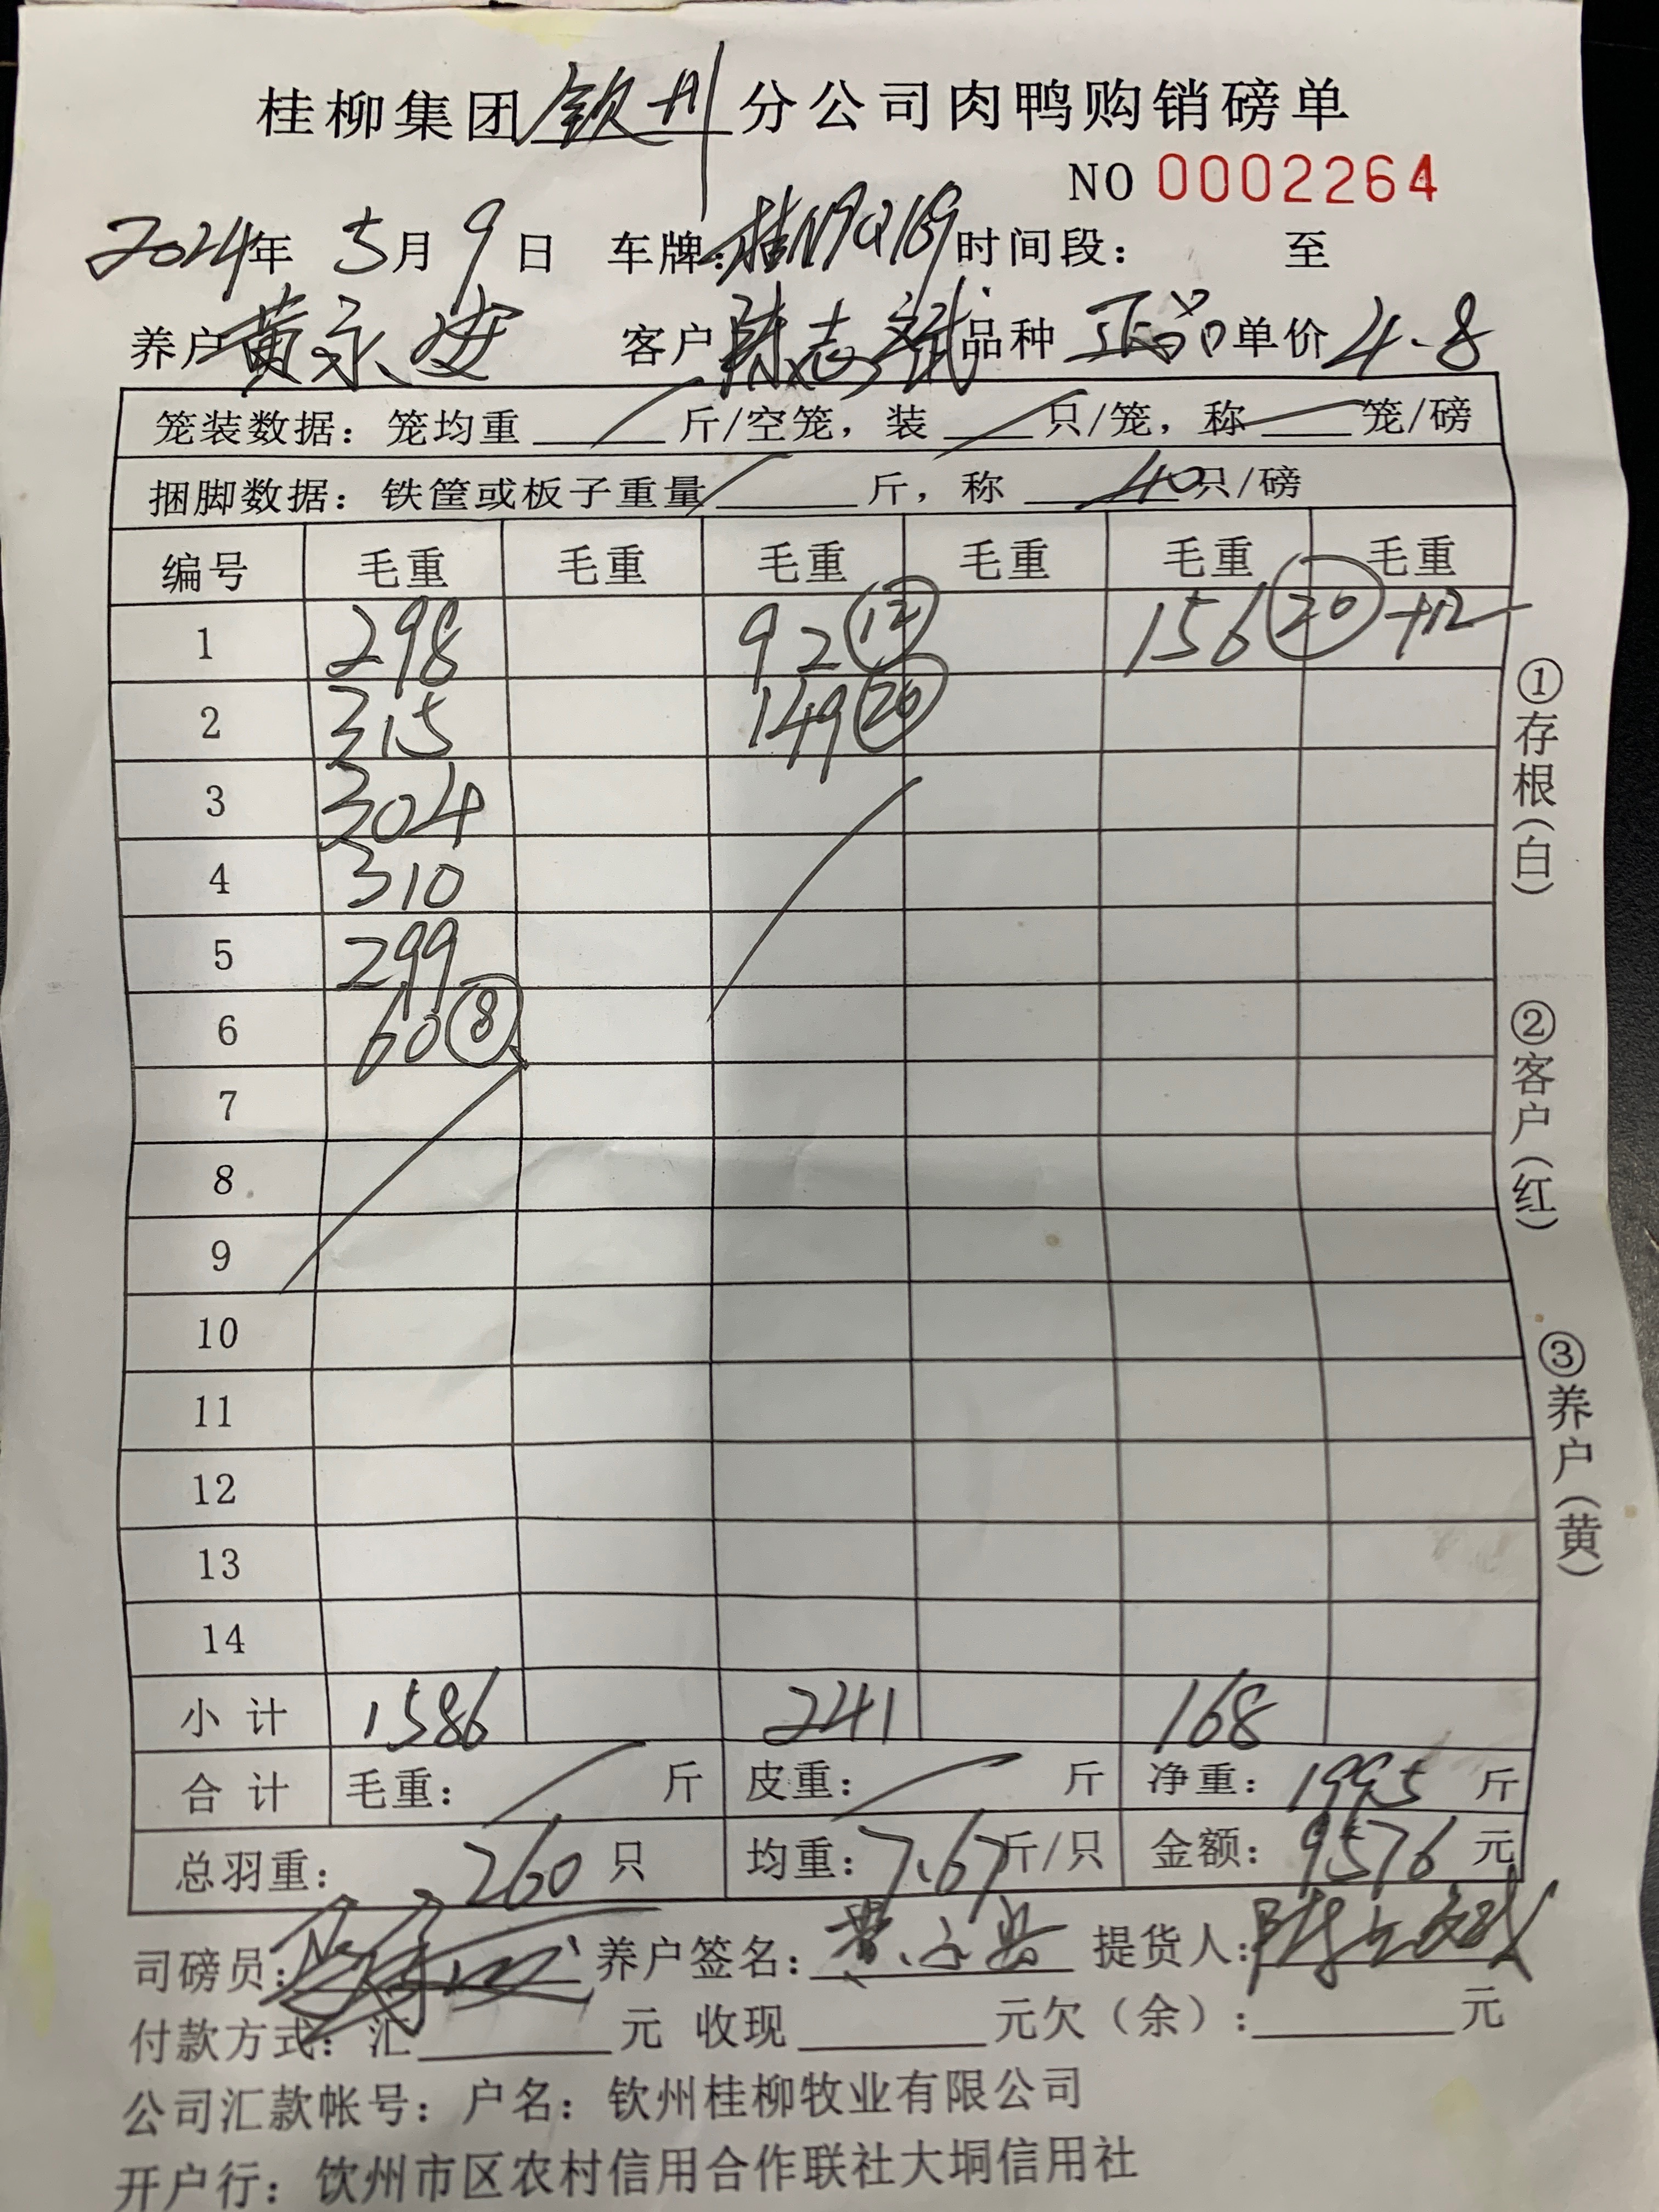 桂柳集团钦州分公司肉鸭购销磅单
NO 0002264
2024年 5月 9日 车牌:桂N9Q1B9 时间段: 至
养户 黄永安 客户 陈志斌 品种 正品 单价 4.8
笼装数据: 笼均重 斤/空笼, 装 只/笼, 称 笼/磅
捆脚数据: 铁筐或板子重量 斤, 称 40 只/磅
编号 毛重 毛重 毛重 毛重 毛重 毛重
1 298 92 (12) 156 (20) +12
2 315 149 (20)
3 304
4 310
5 299
6 60 (8)
7
8
9
10
11
12
13
14
小计 1586 241 168
合计 毛重: 斤 皮重: 斤 净重: 1995 斤
总羽重: 260 只 均重: 7.67 斤/只 金额: 9576 元
司磅员: 养户签名: 黄永安 提货人:
付款方式: 汇 元 收现 元欠(余): 元
公司汇款帐号: 户名: 钦州桂柳牧业有限公司
开户行: 钦州市区农村信用合作联社大垌信用社
①存根(白)
②客户(红)
③养户(黄)